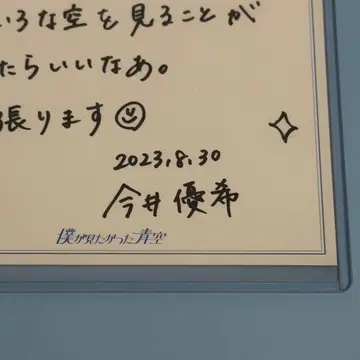 いろな空を見ることが
たらいいなあ。
張ります
2023.8.30
今井優希
僕が見たかった青空